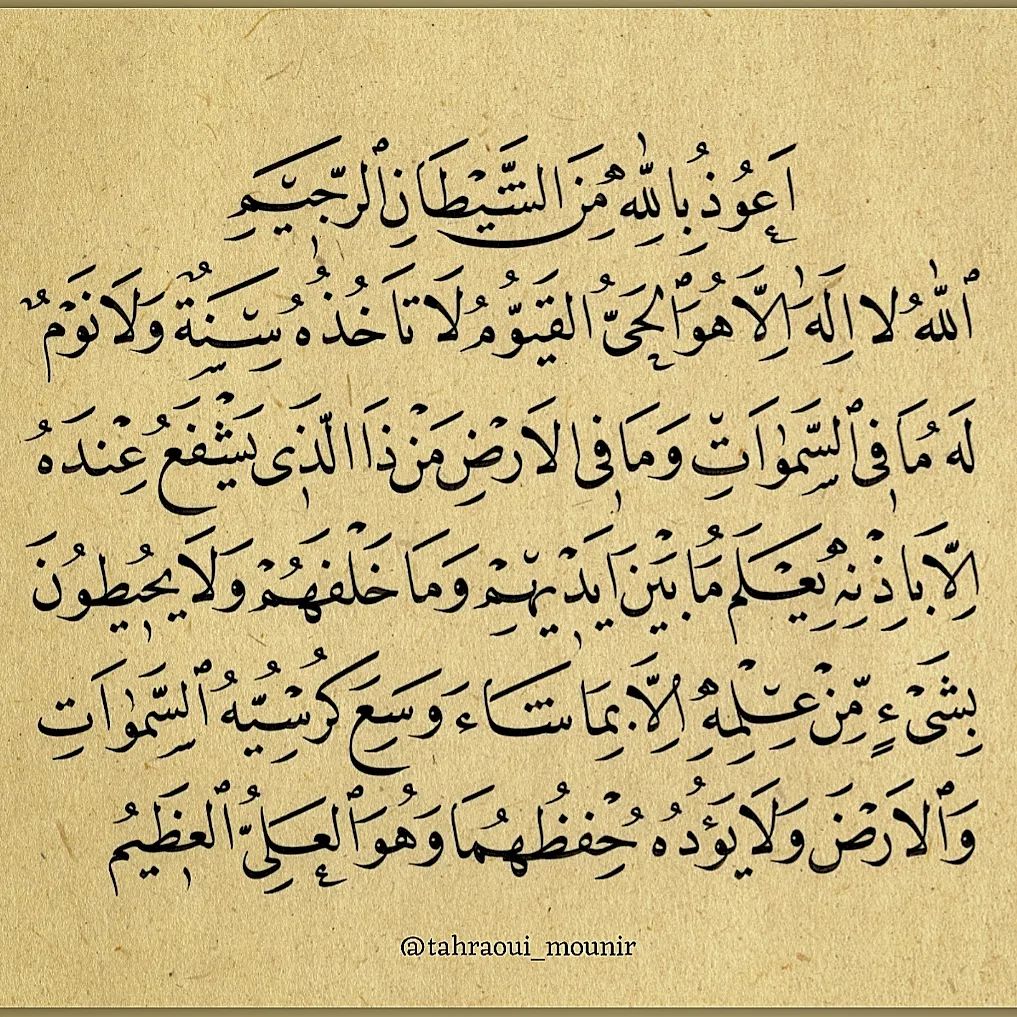 اَعُوذُ بِاللّٰهِ مِنَ الشَّيْطَانِ ٱلرَّجِيمِ
ٱللّٰهُ لَا اِلٰهَ اِلَّا هُوَ ٱلْحَىُّ الْقَيُّومُ لَا تَاخُذُهُ سِنَةٌ وَلَا نَوْمٌ
لَهُ مَا فِى ٱلسَّمٰوَاتِ وَمَا فِى الْاَرْضِ مَنْ ذَا الَّذِى يَشْفَعُ عِنْدَهُ
اِلَّا بِاِذْنِهِ يَعْلَمُ مَا بَيْنَ اَيْدِيهِمْ وَمَا خَلْفَهُمْ وَلَا يُحِيطُونَ
بِشَىْءٍ مِّنْ عِلْمِهِ اِلَّا بِمَا شَاءَ وَسِعَ كُرْسِيُّهُ ٱلسَّمٰوَاتِ
وَٱلْاَرْضَ وَلَا يَؤُدُهُ حِفْظُهُمَا وَهُوَ ٱلْعَلِىُّ ٱلْعَظِيمُ
@tahraoui_mounir